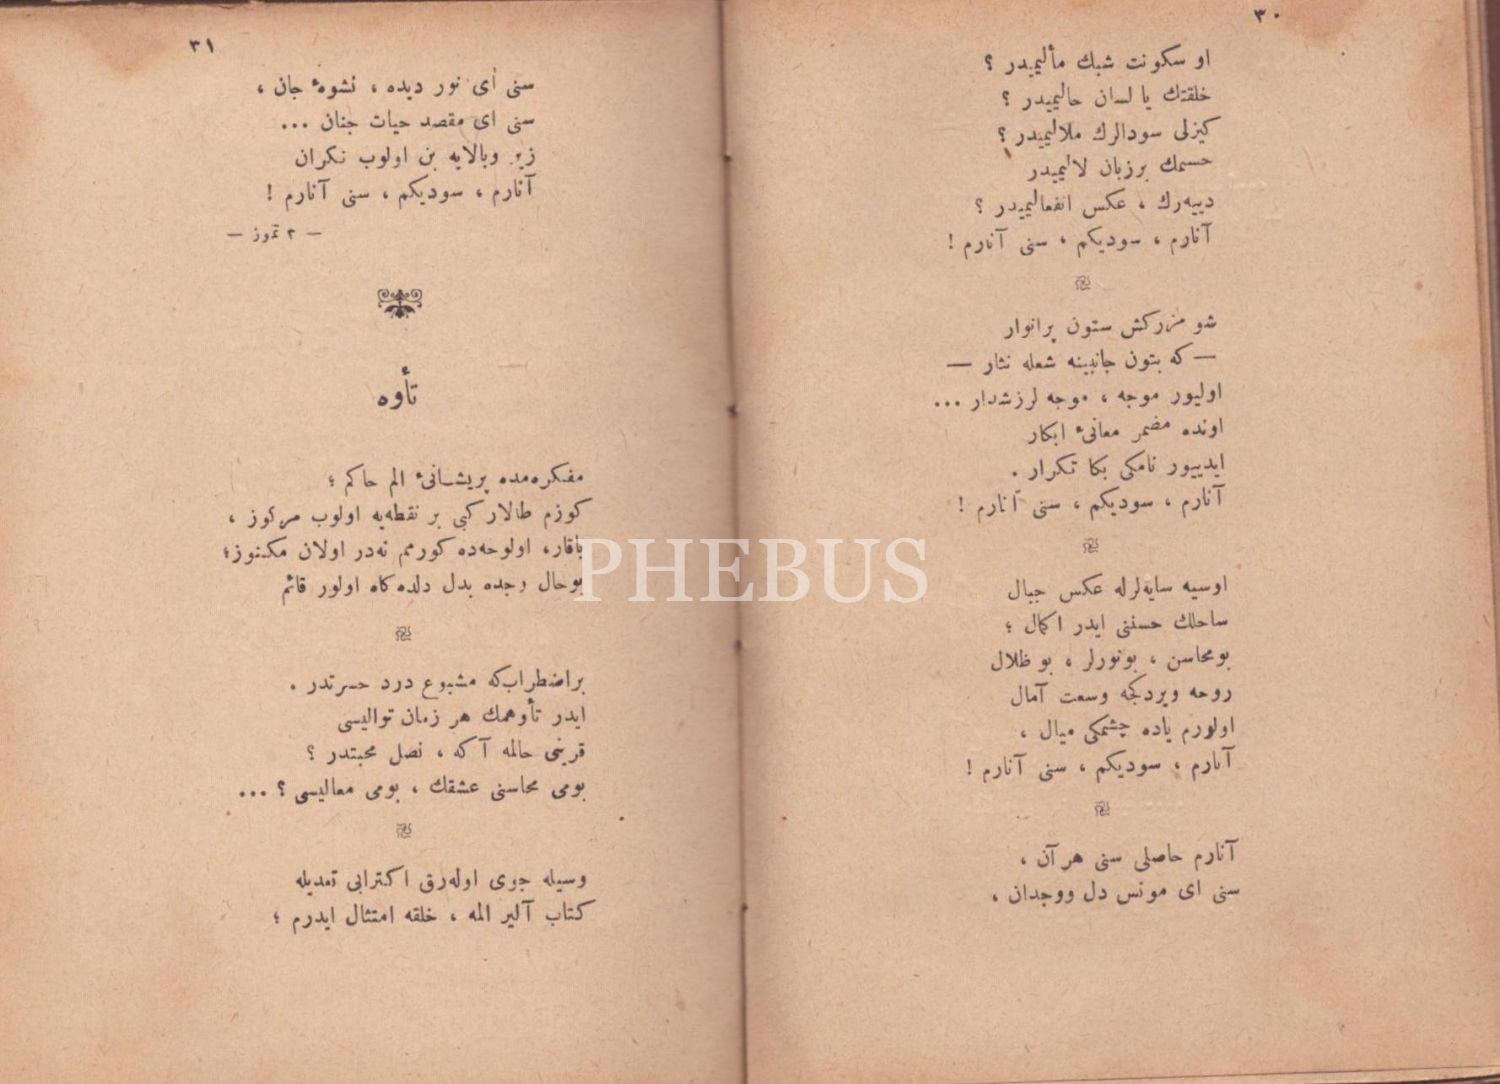 ٣٠
او سكونت شبك مأليميدر ؟
خلقتك يا لسان حاليميدر ؟
كيزلى سودالرك ملاليميدر ؟
حسمك برزبان لاليميدر
دييه‌رك ، عكس انفعاليميدر ؟
آنارم ، سوديكم ، سنى آنارم !
شو مزركش ستون پرانوار
— كه بتون جانبينه شعله نثار —
اوليور موجه ، موجه لرزشدار ...
اونده مضمر معانئ ابكار
ايدييور نامكى بكا تكرار .
آنارم ، سوديكم ، سنى آنارم !
اوسيه سايه‌لرله عكس جبال
ساحلك حسننى ايدر اكمال ؛
بومحاسن ، بونورلر ، بو ظلال
روحه ويردكجه وسعت آمال
اولورم ياده چشمكى ميال ،
آنارم ، سوديكم ، سنى آنارم !
آنارم حاصلى سنى هرآن ،
سنى اى مونس دل ووجدان ،
٣١
سنى اى نور ديده ، نشوهٔ جان ،
سنى اى مقصد حيات جنان ...
زير وبالايه بن اولوب نكران
آنارم ، سوديكم ، سنى آنارم !
— ٢ تموز —
تأوه
مفكره‌مده پريشانئ الم حاكم ؛
كوزم طالار كبى بر نقطه‌يه اولوب مركوز ،
باقار، اولوحه‌ده كورمم نه‌در اولان مكنوز؛
بوحال وجده بدل دلده‌كاه اولور قائم
براضطراب‌كه مشبوع درد حسرتدر .
ايدر تأوهمك هر زمان تواليسى
قرينى حالمه آكه ، نصل محبتدر ؟
بومى محاسنى عشقك ، بومى معاليسى ؟ ...
وسيله جوى اوله‌رق اكترابى تعديله
كتاب آلير المه ، خلقه امتثال ايدرم ؛
PHEBUS